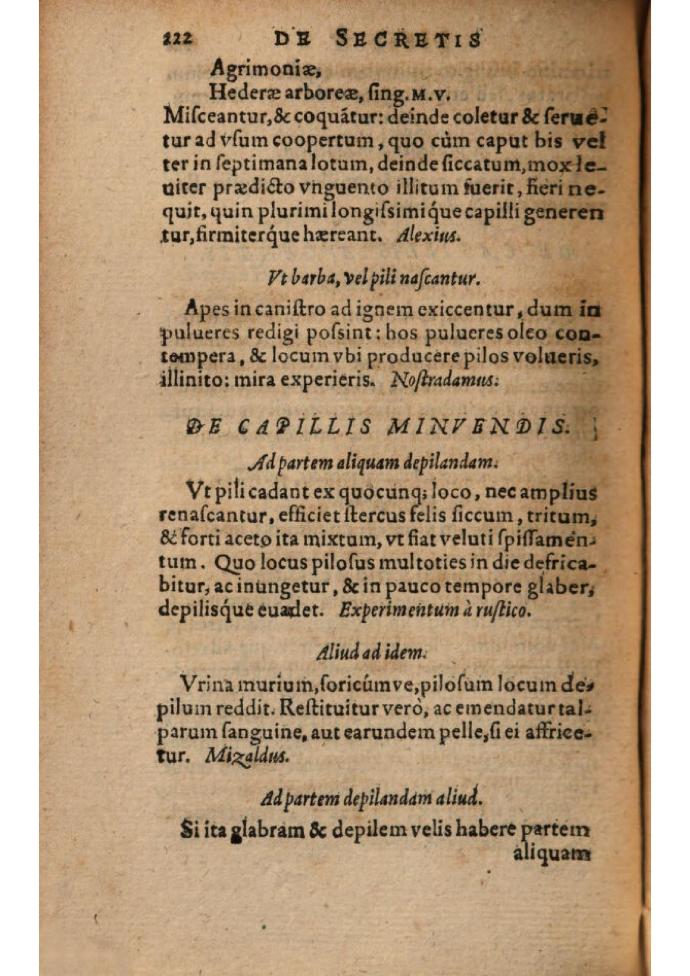 222 DE SECRETIS
Agrimoniæ,
Hederæ arboreæ, ſing. M. V.
Miſceantur, & coquātur: deinde coletur & ſerue-
tur ad vſum coopertum, quo cùm caput bis vel
ter in ſeptimana lotum, deinde ſiccatum, mox le-
uiter prædicto vnguento illitum fuerit, fieri ne-
quit, quin plurimi longiſsimíque capilli generen
tur, firmitérque hæreant. Alexius.
Vt barba, vel pili naſcantur.
Apes in caniſtro ad ignem exiccentur, dum in
pulueres redigi poſsint: hos pulueres oleo con-
tempera, & locum vbi producere pilos volueris,
illinito: mira experieris. Noſtradamus.
DE CAPILLIS MINVENDIS.
Ad partem aliquam depilandam.
Vt pili cadant ex quocunq; loco, nec amplius
renaſcantur, efficiet ſtercus felis ſiccum, tritum,
& forti aceto ita mixtum, vt fiat veluti ſpiſſamen-
tum. Quo locus piloſus multoties in die defrica-
bitur, ac inungetur, & in pauco tempore glaber,
depiliſque euadet. Experimentum à ruſtico.
Aliud ad idem.
Vrina murium, ſoricúmve, piloſum locum de-
pilum reddit. Reſtituitur verò, ac emendatur tal-
parum ſanguine, aut earundem pelle, ſi ei affrice-
tur. Mizaldus.
Ad partem depilandam aliud.
Si ita glabram & depilem velis habere partem
aliquam